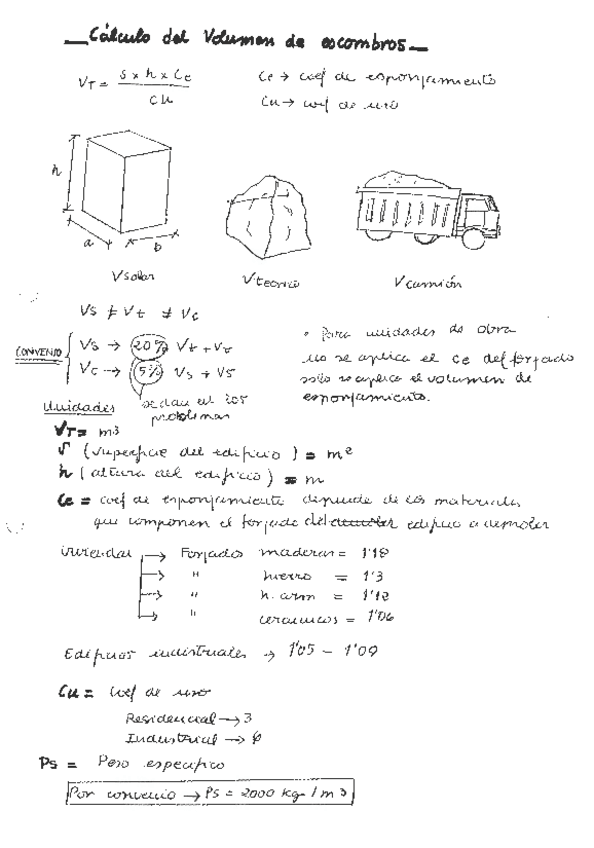 Cálculo del Volumen de escombros
VT = S x h x Ce / Cu
Ce → coef de esponjamiento
Cu → coef de uso
h
a
b
V solar
V teorico
V camión
Vs ≠ Vt ≠ Vc
CONVENIO
Vs → 20% Vt + Vt
Vc → 5% Vs + Vs
se dan en los problemas
• Para unidades de obra
no se aplica el Ce del forjado
solo se aplica el volumen de
esponjamiento.
Unidades
VT = m3
S (superficie del edificio) = m2
h (altura del edificio) = m
Ce = coef de esponjamiento depende de los materiales
que componen el forjado del edificio a demoler
viviendas → Forjados maderas = 1'18
→ " hierro = 1'3
→ " h. arm = 1'12
→ " ceramicos = 1'06
Edificios industriales → 1'05 - 1'09
Cu = coef de uso
Residencial → 3
Industrial →
Ps = Peso especifico
Por convenio → Ps = 2000 kg / m3